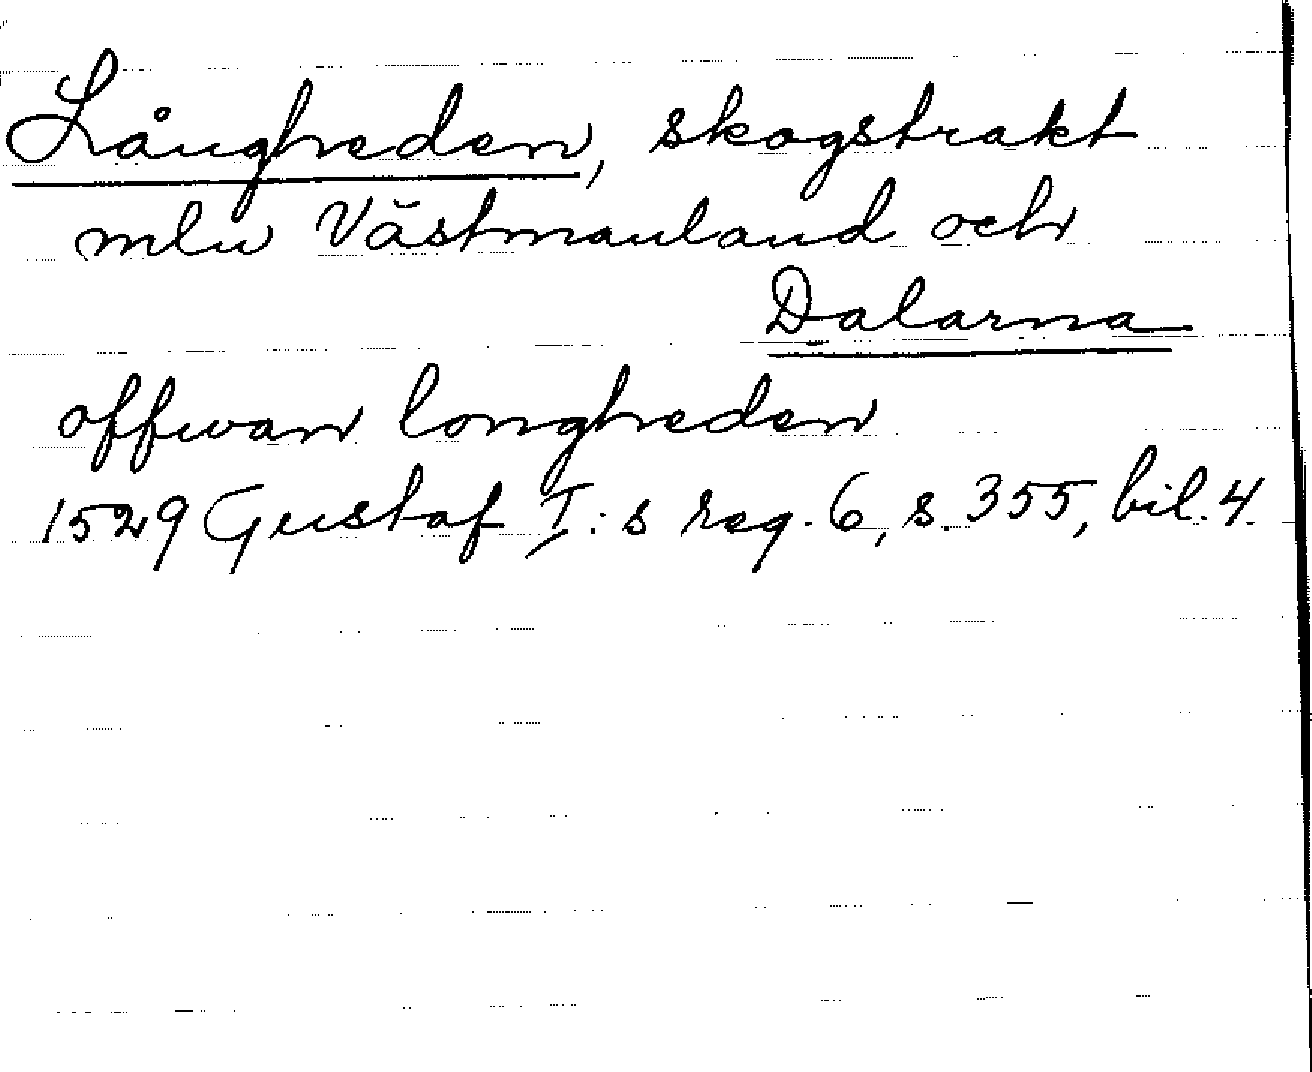 Långheden, skogstrakt
mln Västmanland och
Dalarna
offwan longheden
1529 Gustaf I:s reg. 6, s. 355, bil. 4.